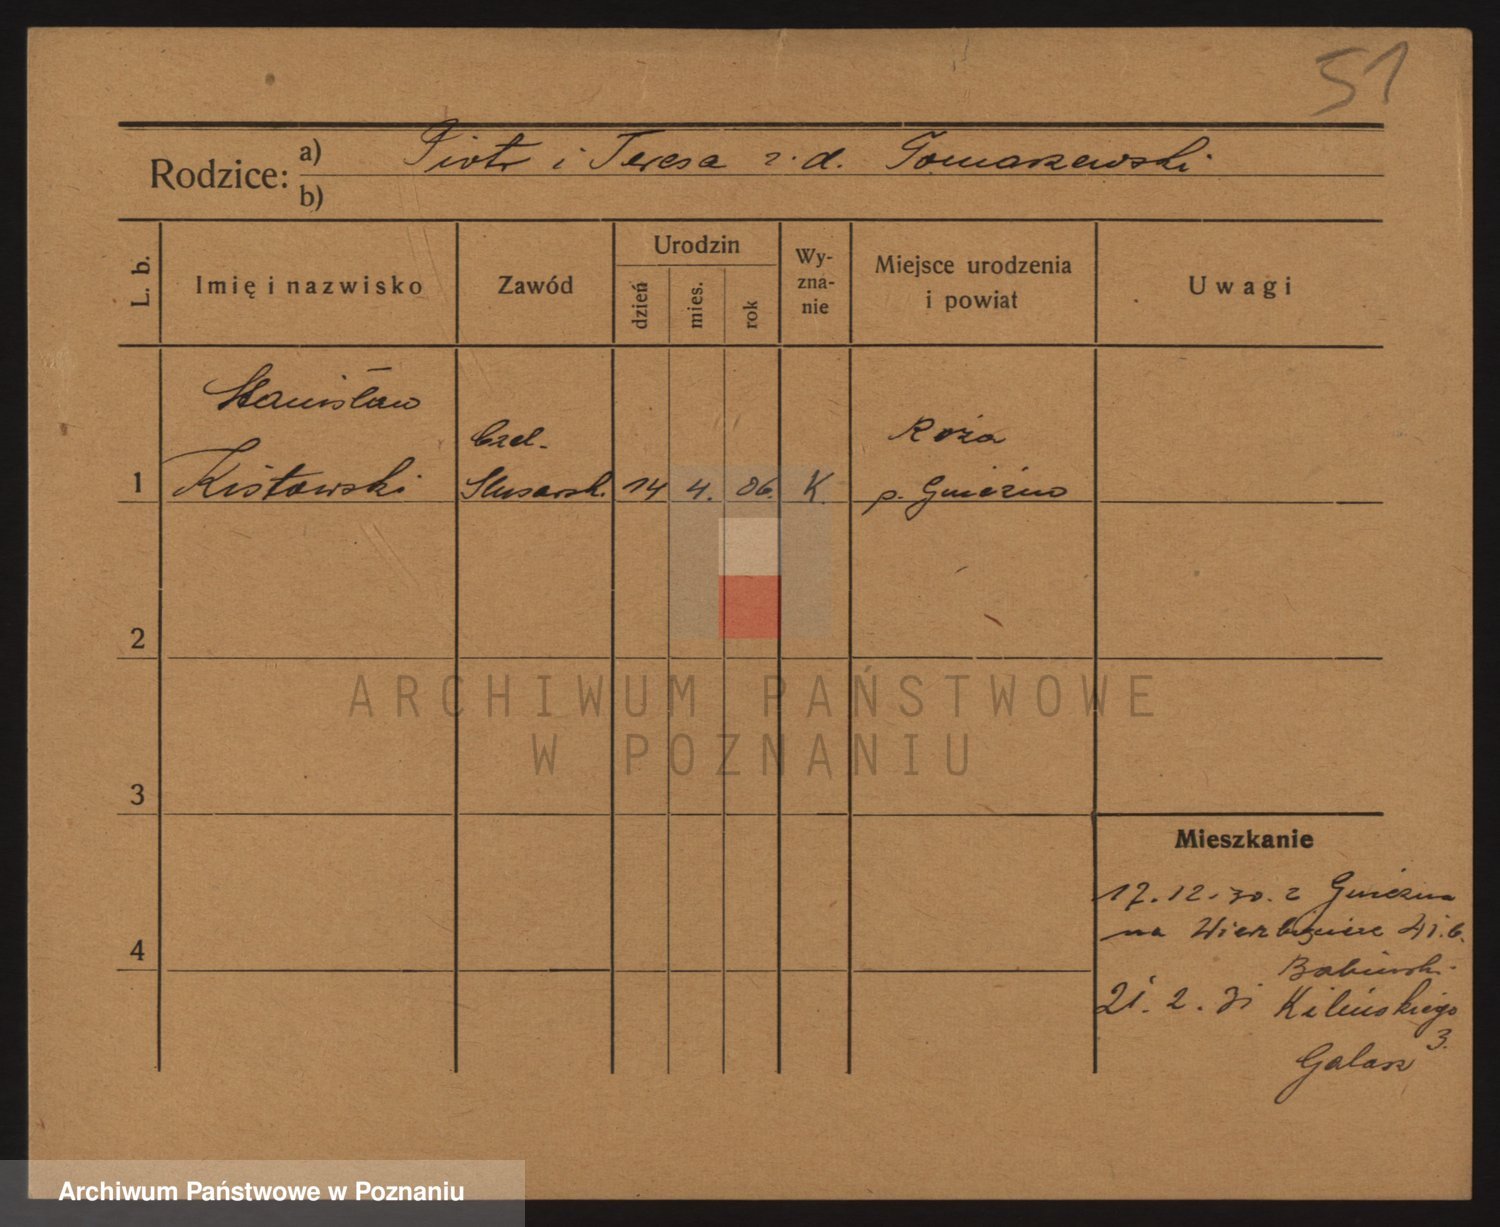 51
Rodzice: a) Piotr i Teresa z. d. Tomaszewski
b)
L. b.
Imię i nazwisko
Zawód
Urodzin
dzień
mies.
rok
Wy-
zna-
nie
Miejsce urodzenia
i powiat
Uwagi
Stanisław
Czel. Roża
1 Kistowski Slusarsk. 14 4. 06. K. p. Gniezno
2
3
4
Mieszkanie
17.12.30. z Gniezna
na Wierzbięcice 41.
Babiński
21. 2. 31 Kilińskiego
3.
Galasz
ARCHIWUM PAŃSTWOWE
W POZNANIU
Archiwum Państwowe w Poznaniu